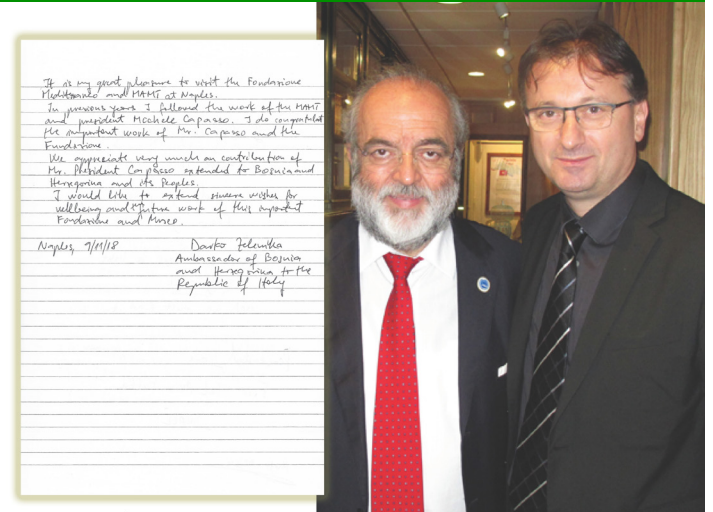 It is my great pleasure to visit the Fondazione
Meditraneo and MAMT at Naples.
In previous years I followed the work of the MAMT
and president Michele Capasso. I do congratulate
the important work of Mr. Capasso and the
Fundazione.
We appreciate very much an contribution of
Mr. President Capasso extended to Bosnia and
Herzegovina and its Peoples.
I would like to extend sincere wishes for
wellbeing and future work of this important
Fondazione and Museo.
Naples, 9/11/18
Darko Zelenika
Ambassador of Bosnia
and Herzegovina to the
Republic of Italy